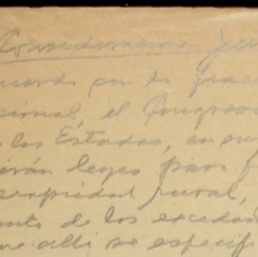 Consideraciones
acuerdo con la fracc
cional, el Congreso
de los Estados, en su
rán leyes para f
propiedad rural,
ento de los exceden
que allí se especif